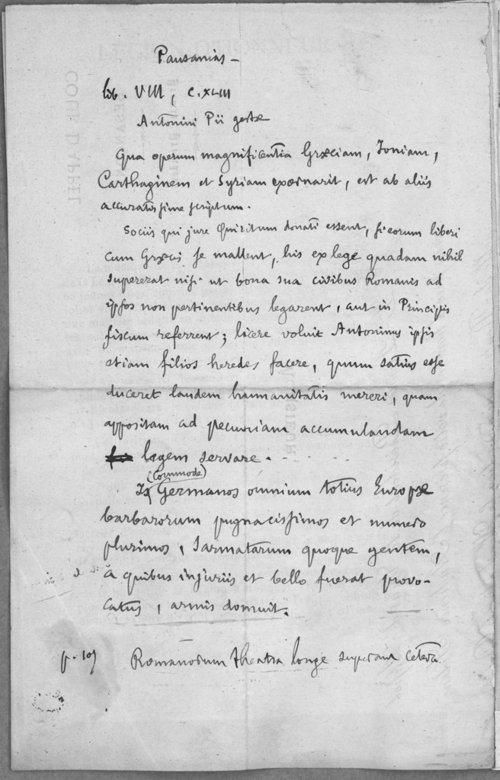 Pausanias –
lib. VIII, c. XLIII
Antonini Pii gestæ
Qua operum magnificentia Græciam, Ioniam,
Carthaginem et Syriam exornarit, est ab aliis
accuratissime scriptum.
Sociis qui jure Quiritium donati essent, si eorum liberi
cum Græcis se mallent, his ex lege quadam nihil
supererat nisi ut bona sua civibus Romanis ad
ipsos non pertinentibus legarent, aut in Principis
fiscum referrent; licere voluit Antoninus ipsis
etiam filios heredes facere, quum satius esse
duceret laudem humanitatis mereri, quam
appositam ad pecuniam accumulandam
legem servare. . . . . .
(Commode)
Is Germanos omnium totius Europæ
barbarorum pugnacissimos et numero
plurimos, Sarmatarum quoque gentem,
a quibus injuriis et bello fuerat provo-
catus, armis domuit.
Romanorum theatra longe superant cetera